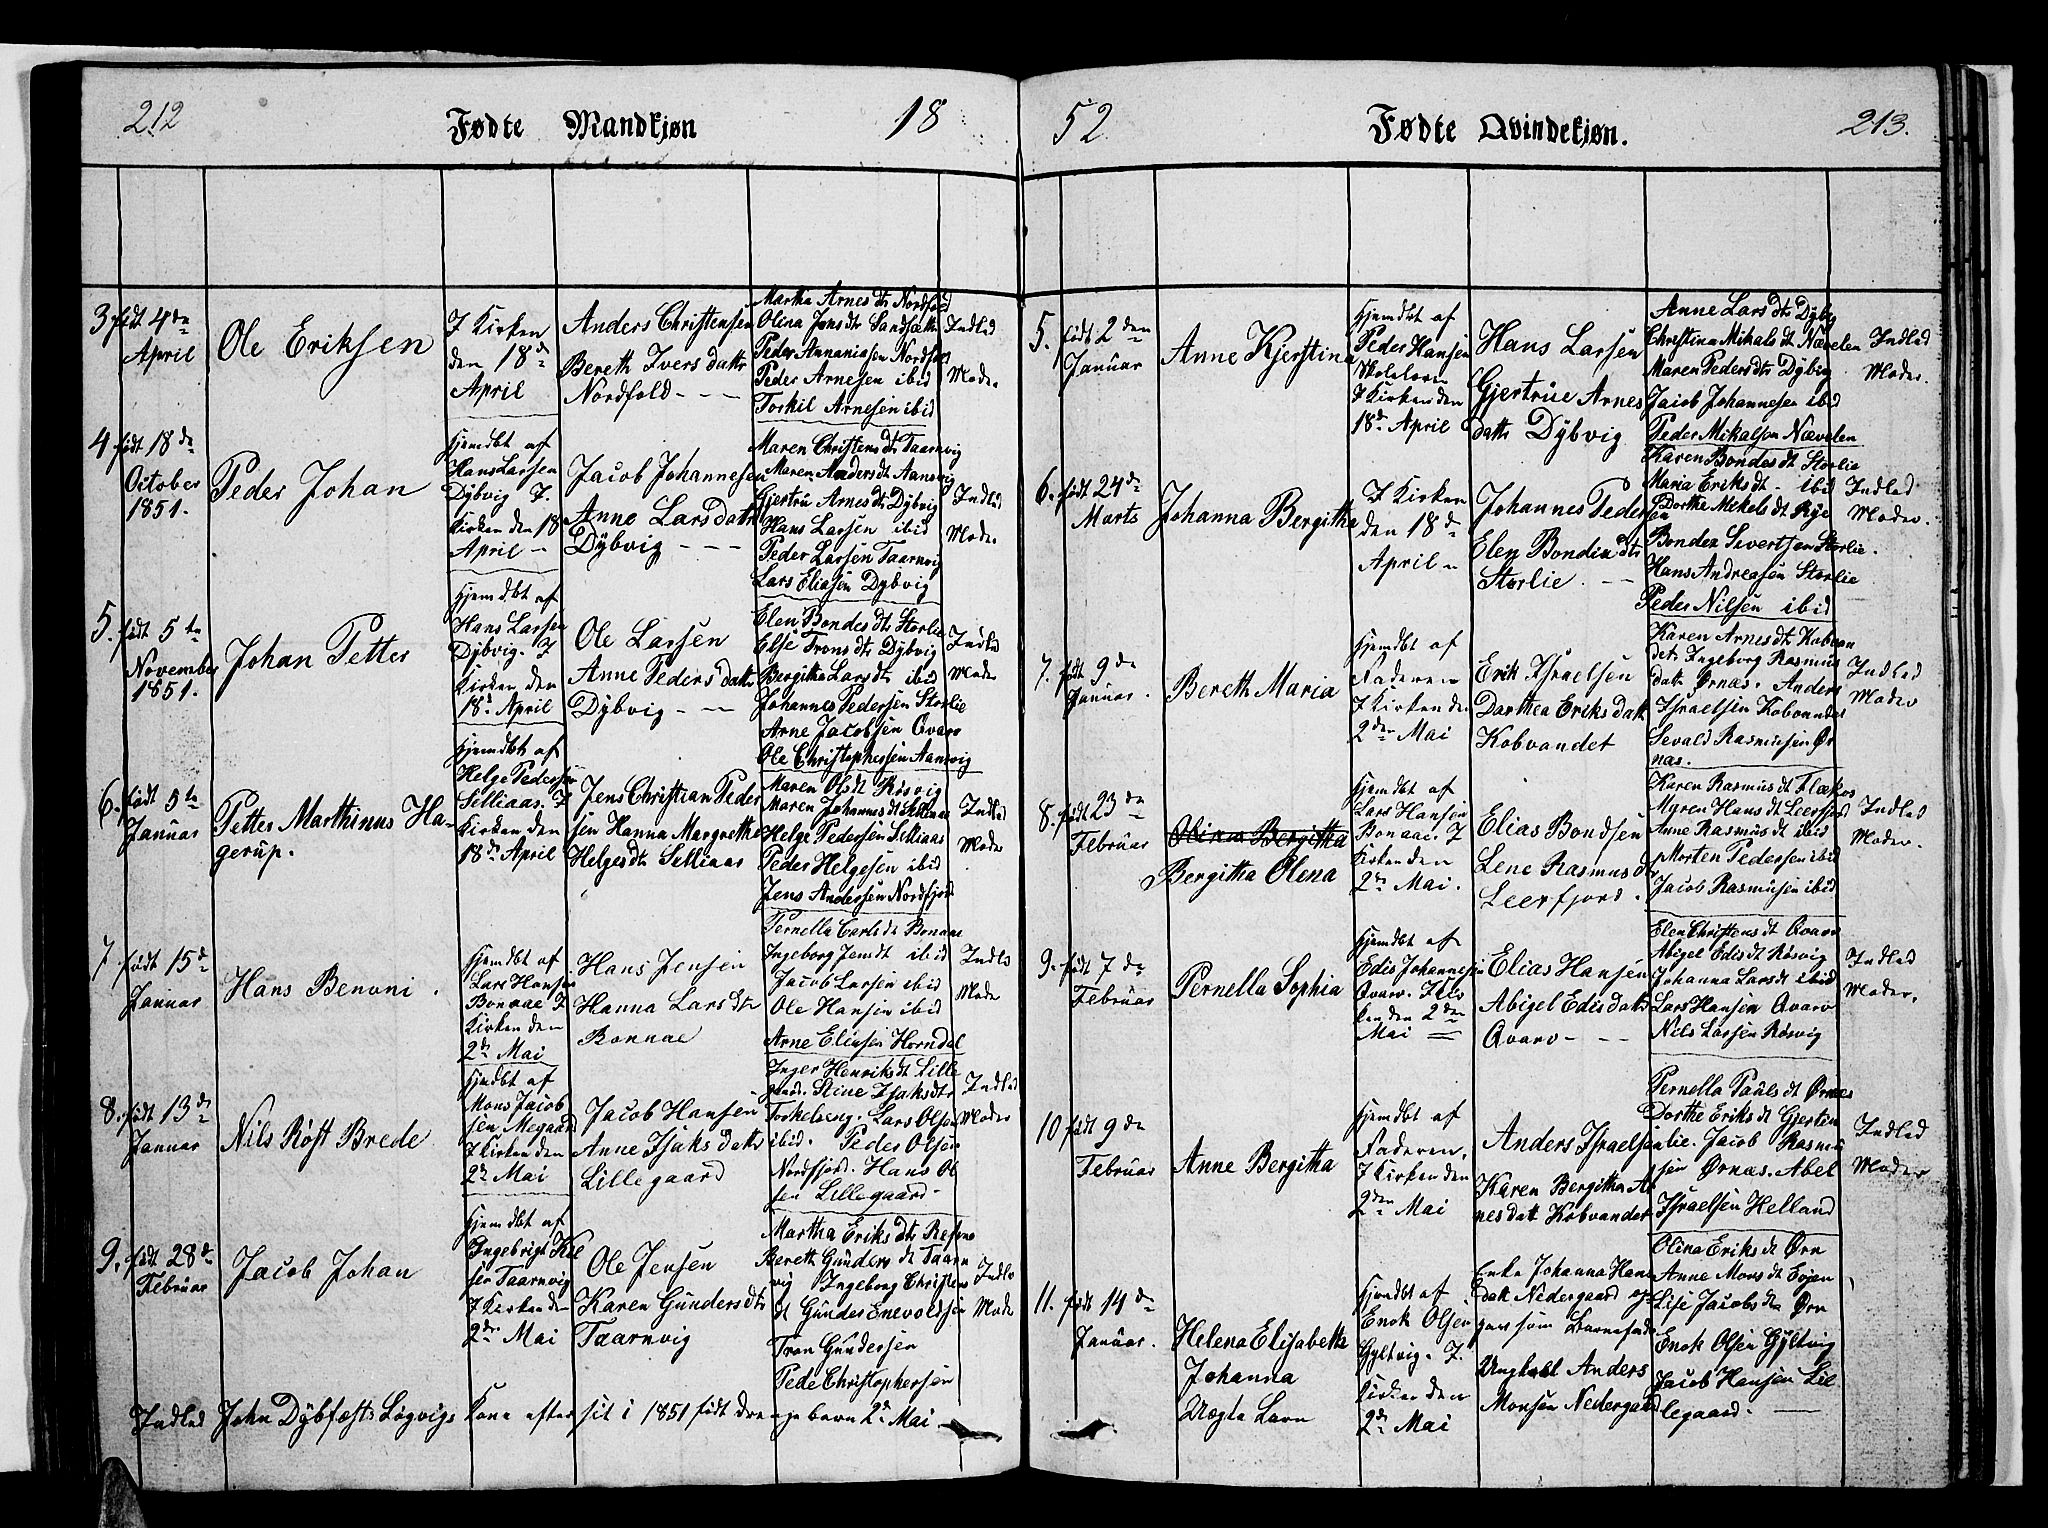 212
Fødte Mandkjøn
18
52
Fødte Qvindekjøn.
213.
3. født 4de
April
Ole Eriksen
I Kirken
den 18de
April
Anders Christensen
Bereth Ivers datter
Nordfold - - -
Martha Arnesdtr Nordfold
Olena Jonsdtr
Peder Annaniasen
Peder Arnesen ibid
Torkil Arnesen ibid
Indled
Moder
4 født 18de
October
1851.
Peder Johan
Hjemdbt af
Hans Larsen
Dybvig I
Kirken den 18
April -
Jacob Johannesen
Anne Lars datter
Dybvig - - -
Maren Christensdtr Taarnvig
Maren Andersdt Aansvig
Gjertru Arnesdtr Dybvig
Hans Larsen ibid
Peder Larsen Taarnvig
Lars Eliasen Dybvig
Indled
Moder
5. født 5te
November
1851.
Johan Petter
Hjemdbt af
Hans Larsen
Dybvig. I
Kirken den
18de April
Ole Larsen
Anne Peders datter
Dybvig - - -
Elen Bondesdtr Storlie
Else Tronsdtr Dybvig
Bergitha Larsdtr ibid
Johannes Pedersen Storlie
Arne Jacobsen Qvarv
Ole Christophersen Aansvig
Indled
Moder
6. født 5te
Januar
Petter Marthinus Ha-
gerup.
Hjemdbt af
Helge Pedersen
Selliaas. I
Kirken den
18de April
Jens Christian Peder
sen Hanna Margretha
Helgesdtr Selliaas
Maren Olsdt Røsvig
Maren Johannesdt Selliaas
Helge Pedersen Selliaas
Peder Helgesen ibid
Jens Andersen Nordfjord
Indled
Moder
7 født 15de
Januar
Hans Benoni.
Hjemdbt af
Lars Hansen
Bonaae I
Kirken den
2den Mai
Hans Jensen
Hanna Larsdtr
Bonnae
Pernella Carlsdt Bonaae
Ingeborg Jensdt ibid
Jacob Larsen ibid
Ole Hansen ibid
Arne Eliasen Horndal
Indled
Moder
8. født 13de
Januar
Nils Røst Brede
Hjmdbt af
Mons Jacob
sen Megaard
I Kirken den
2den Mai
Jacob Hansen
Anne Isaks datter
Lillegaard
Inger Henriksdt Lille
gaard. Stine Isaksdtr
Torkeleng. Lars Olsen
ibid. Peder Olsen
Nordfjord. Hans Ol
sen Lillegaard-
Indled
Moder
9. født 28de
Februar
Jacob Johan
Hjemdbt af
Ingebrigt
sen Taarnvig
I Kirken den
2den Mai
Ole Jensen
Karen Gundersdtr
Taarnvig
Martha Eriksdtr
Bereth Gundersdt Taarn
vig Ingeborg Christens
dt Gunder Enevoldsen
Tron Gundersen
Peder Christophersen
Indled
Moder
Indled John Dybfæsts Løgvigs Kone efter sit i 1851 født drenge barn 2de Mai
5. født 2den
Januar
Anne Kjerstina
Hjemdbt af
Peder Hansen
Skolelærer
I Kirken den
18de April
Hans Larsen
Gjertrue Arnes
datter Dybvig
Anne Larsdtr Dybvig
Christina Mikalsdt Nævelen
Maren Pedersdtr Dybvig
Jacob Johannesen ibid
Peder Mikalsen Nævelen
Indled
Moder.
6. født 24de
Marts
Johanna Bergitha
I Kirken
den 18de
April
Johannes Peder
sen
Elen Bondesdtr
Storlie. - -
Karen Bondesdt Storlie
Maria Eriksdt - ibid
Dorthe Mekelsdt Rye
Bonden Sivertsen Storlie.
Hans Andreasen Storlie
Peder Nilsen ibid
Indled
Moder.
7. født 9de
Januar.
Bereth Maria
Hjemdbt af
Faderen
I Kirken den
2den Mai
Erik Israelsen
Dorthea Eriks datt
Kobvandet
Karen Arnesdtr Kobvan
det. Ingeborg Rasmus
datt. Ørnæs. Anders
Israelsen Kobvandet
Sevald Rasmusen Ør
næs.
Indled
Moder
8. født 23de
Februar
Olina Bergitha
Bergitha Olena
Hjemdbt af
Lars Hansen
Bonaae. I
Kirken den
2den Mai.
Elias Bondsen
Lene Rasmus dtr
Leerfjord.
Karen Rasmusdt
Maren Hansdt Leerfjord
Anne Rasmusdt ibid
Morten Pedersen ibid
Jacob Rasmusen ibid
Indled
Moder.
9. født 7de
Februar
Pernella Sophia
Hjemdbt af
Edis Johannesen
Qvarv. I Kir
ken den 2den
Mai =
Elias Hansen
Abigel Edis datter
Qvarv - - -
Elen Christensdt Qvarv
Abigel Edisdt Røsvig
Johanna Larsdt ibid
Lars Hansen Qvarv
Nils Larsen Røsvig
Indled
Moder.
10 født 9de
Februar
Anne Bergitha
Hjemdbt af
Faderen.
I Kirken den
2den Mai
Anders Israelsen
Karen Bergitha Ar
nes datt Kobvandet
Pernella Paulsdt Ørnæs
Dorthe Eriksdt Gjerten
lie. Jacob Rasmu
sen Ørnæs. Abel
Israelsen Helland
Indled
Moder
11. født 14de
Januar.
Helena Elisabeth
Johanna
Uægte Barn
Hjemdbt af
Enok Olsen
Gyltvig. I.
Kirken den
2den Mai
Enke Johanna Hans
datt Nedergaard op-
gav som Barnefader
Ungkarl Anders
Monsen Nedergaard
Olina Eriksdt Ørn
Anne Monsdt
Lise Jacobsdtr Ørn
Enok Olsen Gyltvig
Jacob Hansen Lil
legaard. -